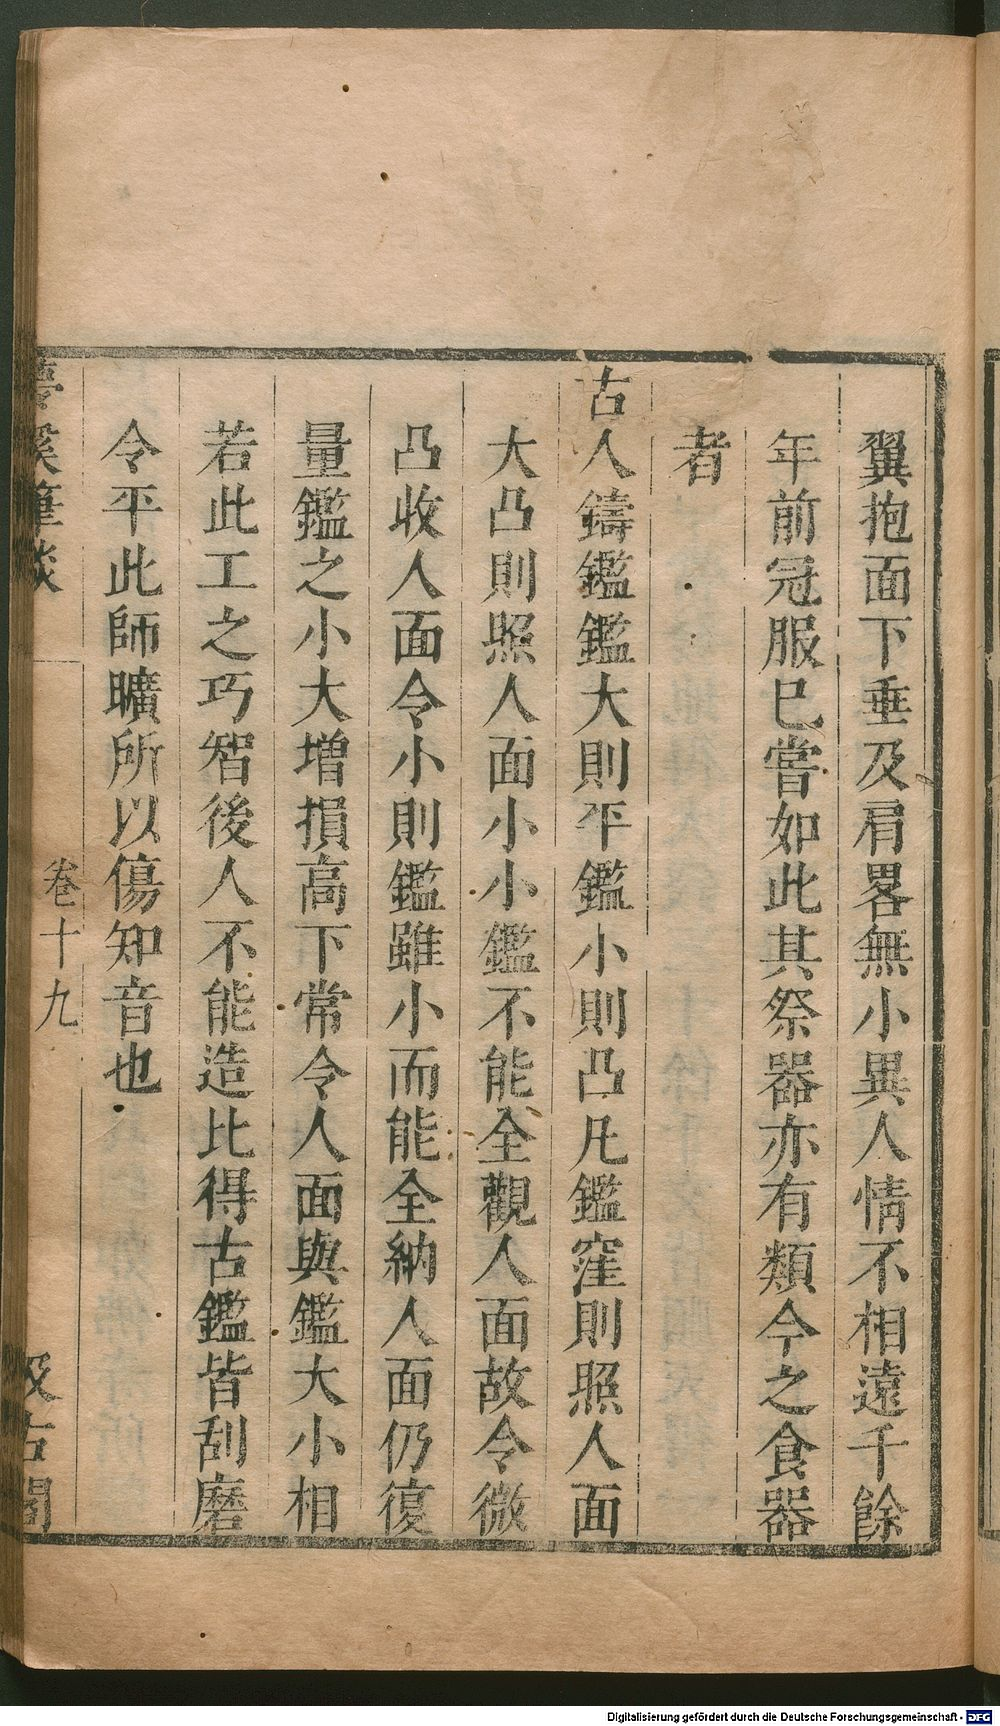 翼抱面下垂及肩畧無小異人情不相遠千餘
年前冠服巳嘗如此其祭器亦有類今之食器
者
古人鑄鑑鑑大則平鑑小則凸凡鑑窪則照人面
大凸則照人面小小鑑不能全觀人面故令微
凸收人面令小則鑑雖小而能全納人面仍復
量鑑之小大增損高下常令人面與鑑大小相
若此工之巧智後人不能造比得古鑑皆刮磨
令平此師曠所以傷知音也
夢溪筆談 卷十九 汲古閣
Digitalisierung gefördert durch die Deutsche Forschungsgemeinschaft - DFG